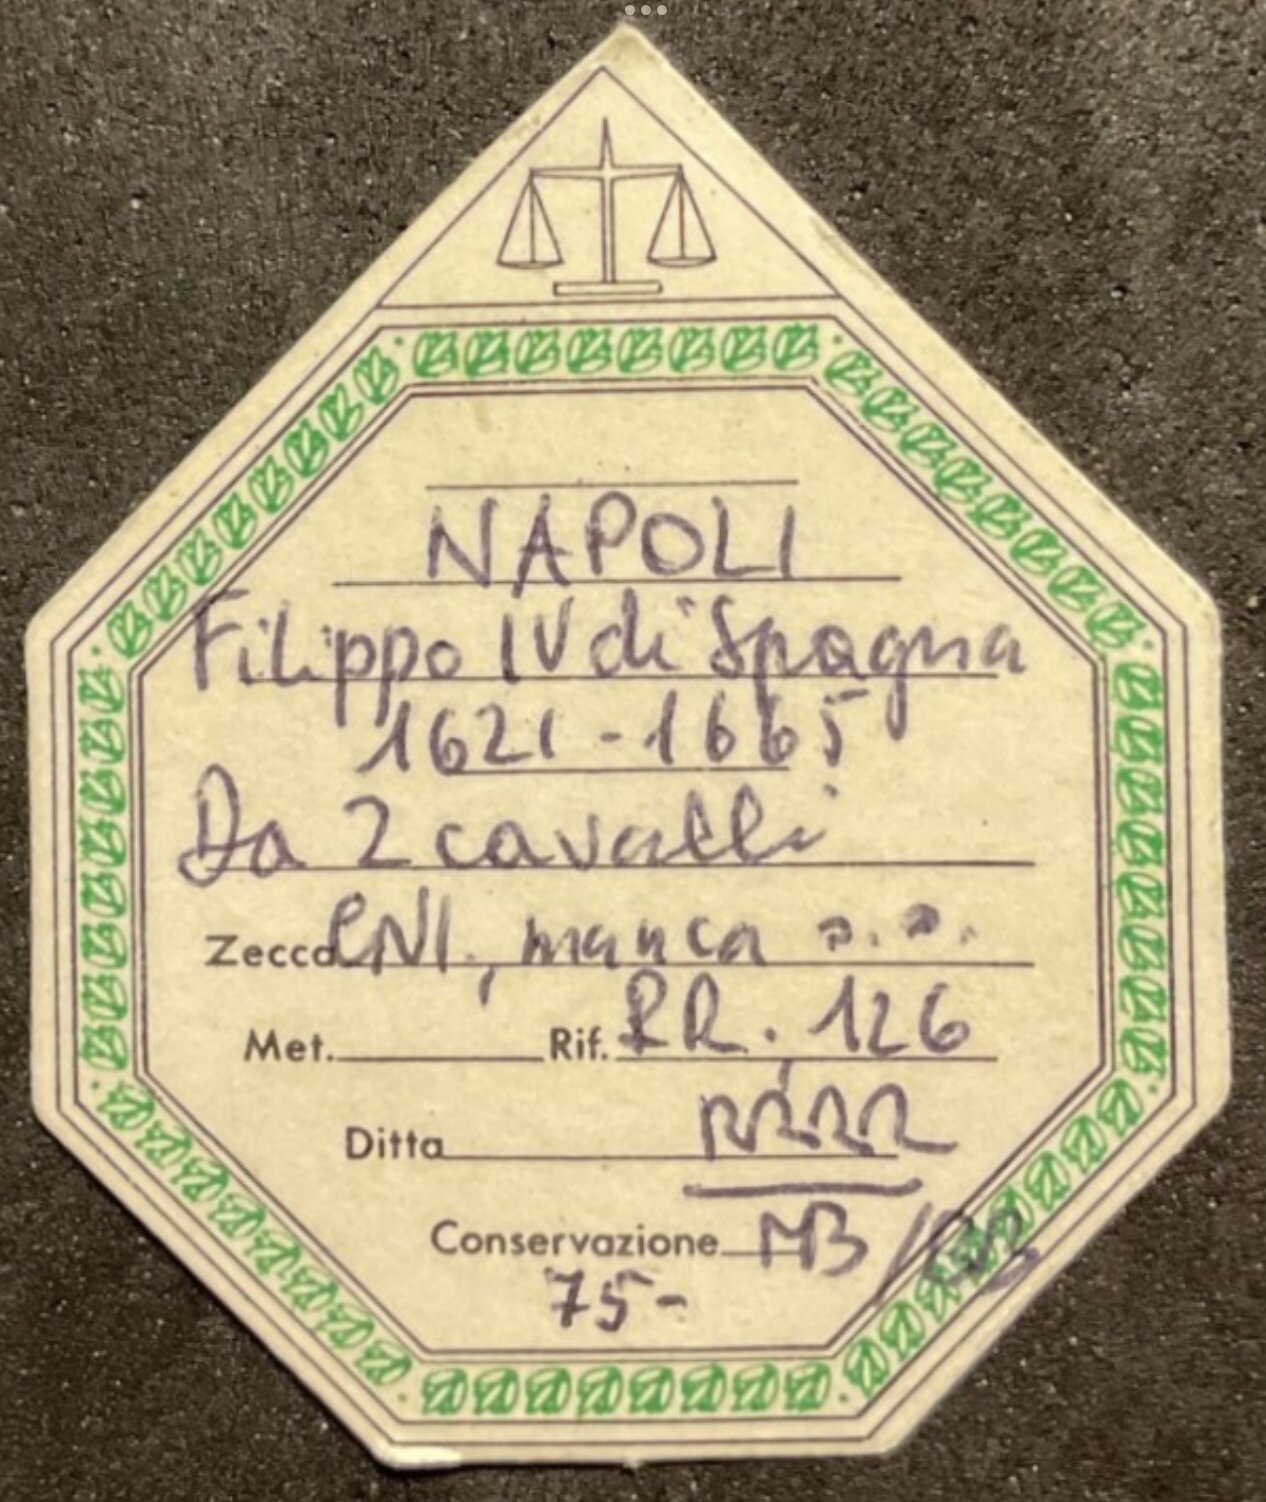 NAPOLI
Filippo IV di Spagna
1621-1665
Da 2 cavalli
Zecca CNI, manca
Met. Rif. RR. 126
Ditta RRRR
Conservazione MB/BB
75-